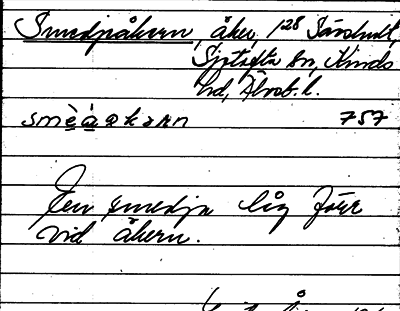 Smedjeåkern, åker, 1/28 Sävshult,
Sjötofta sn, Kinds
hd, Älvsb. l.
smèåakərn 757
En smedja låg förr
vid åkern.